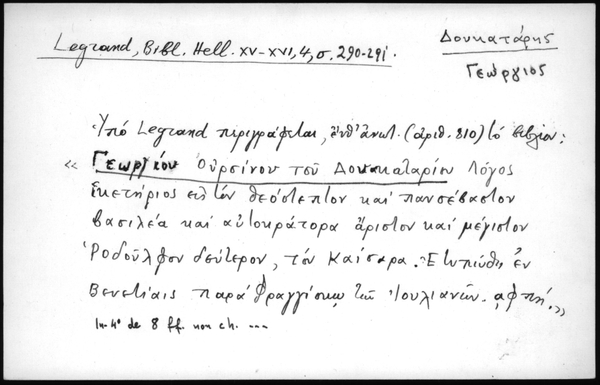 Legrand, Bibl. Hell. XV-XVI, 4, σ. 290-291.
Δουκατάρης
Γεώργιος
Ὑπό Legrand περιγράφεται, ἐνθ' ἀνωτ. (ἀριθ. 810) τό βιβλίον:
« Γεωργίου Οὐρσίνου τοῦ Δουκαταρίου Λόγος
ἱκετήριος εἰς τόν θεόστεπτον καί πανσέβαστον
βασιλέα καί αὐτοκράτορα ἄριστον καί μέγιστον
Ῥοδοῦλφον δεύτερον, τόν Καίσαρα. Ἐτυπώθη ἐν
Βενετίαις παρά Φραγγίσκῳ τῷ Ἰουλιανῶν. αφπή. »
In-4º de 8 ff. non ch. ---